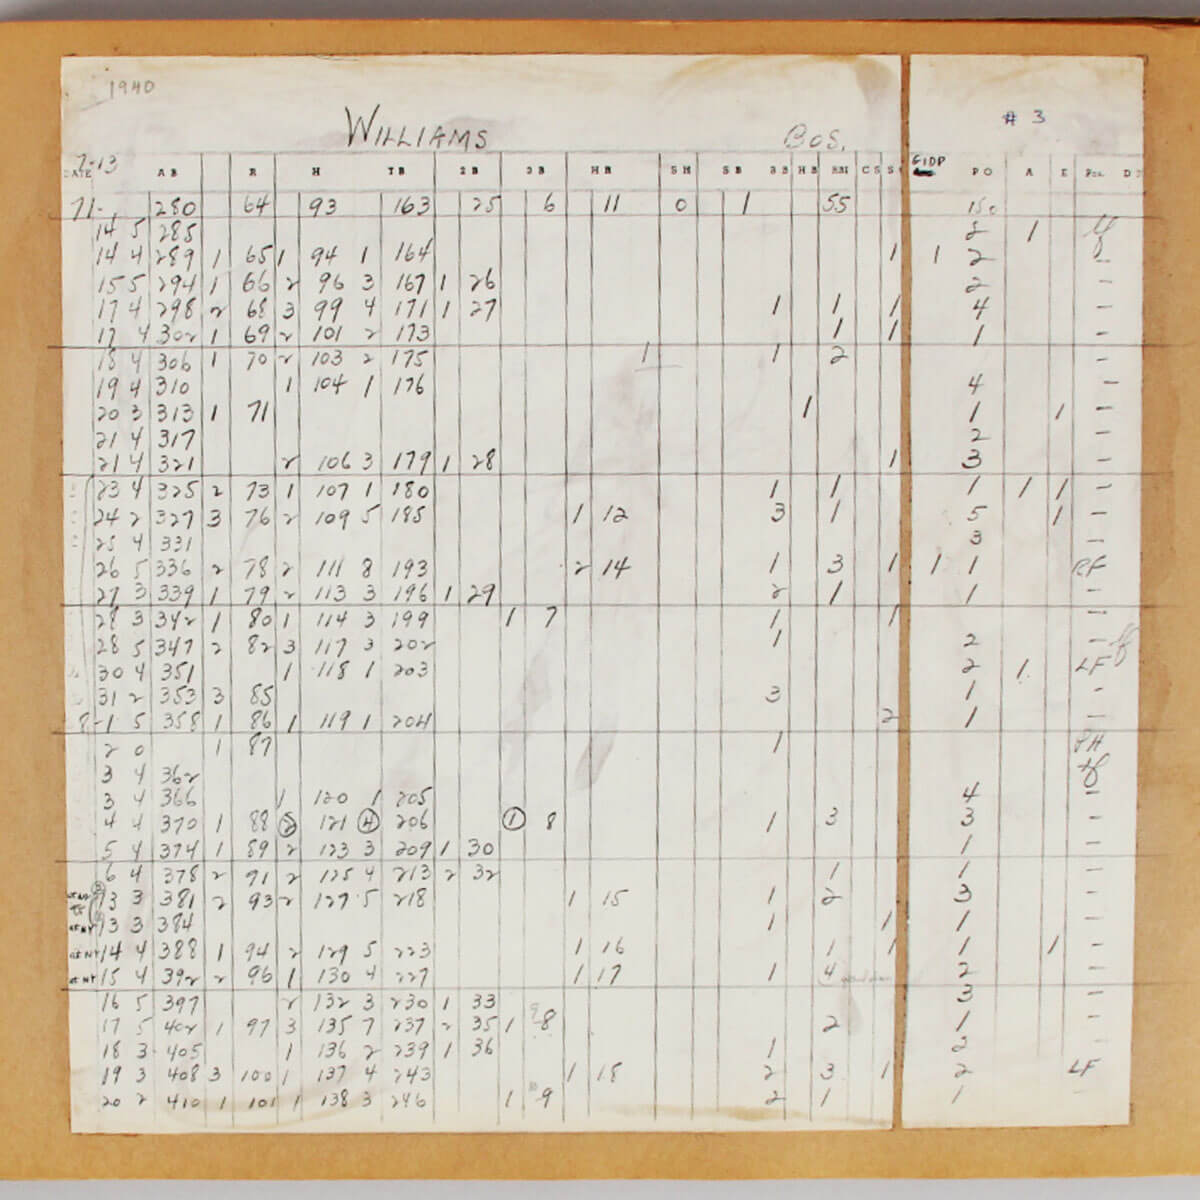 1940
# 3
WILLIAMS BOS.
7-13
DATE AB R H TB 2B 3B HR SH SB BB HB RBI CS S GIDP PO A E Pos. D
71- 280 64 93 163 25 6 11 0 1 55 150
14 5 285 2 1 lf
14 4 289 1 65 1 94 1 164 1 1 2 -
15 5 294 1 66 2 96 3 167 1 26 2 -
17 4 298 2 68 3 99 4 171 1 27 1 1 1 4 -
17 4 302 1 69 2 101 2 173 1 1 1 -
18 4 306 1 70 2 103 2 175 1 1 2 -
19 4 310 1 104 1 176 4 -
20 3 313 1 71 1 1 1 -
21 4 317 2 -
21 4 321 2 106 3 179 1 28 1 3 -
23 4 325 2 73 1 107 1 180 1 1 1 1 1 -
24 2 327 3 76 2 109 5 185 1 12 3 1 5 1 -
25 4 331 3 -
26 5 336 2 78 2 111 8 193 2 14 1 3 1 1 1 RF
27 3 339 1 79 2 113 3 196 1 29 2 1 1 -
28 3 342 1 80 1 114 3 199 1 7 1 1 -
28 5 347 2 82 3 117 3 202 1 2 - lf
30 4 351 1 118 1 203 2 1 LF
31 2 353 3 85 3 1 -
8-1 5 358 1 86 1 119 1 204 2 1 -
2 0 1 87 1 PH
3 4 362 lf
3 4 366 1 120 1 205 4 -
4 4 370 1 88 2 121 4 206 1 8 1 3 3 -
5 4 374 1 89 2 123 3 209 1 30 1 -
6 4 378 2 91 2 125 4 213 2 32 1 1 -
13 3 381 2 93 2 127 5 218 1 15 1 2 3 -
at NY 13 3 384 1 1 1 -
at NY 14 4 388 1 94 2 129 5 223 1 16 1 1 1 1 -
at NY 15 4 392 2 96 1 130 4 227 1 17 1 4 2 -
16 5 397 2 132 3 230 1 33 3 -
17 5 402 1 97 3 135 7 237 2 35 1 8 2 1 -
18 3 405 1 136 2 239 1 36 1 2 -
19 3 408 3 100 1 137 4 243 1 18 2 3 1 2 LF
20 2 410 1 101 1 138 3 246 1 9 2 1 1 -